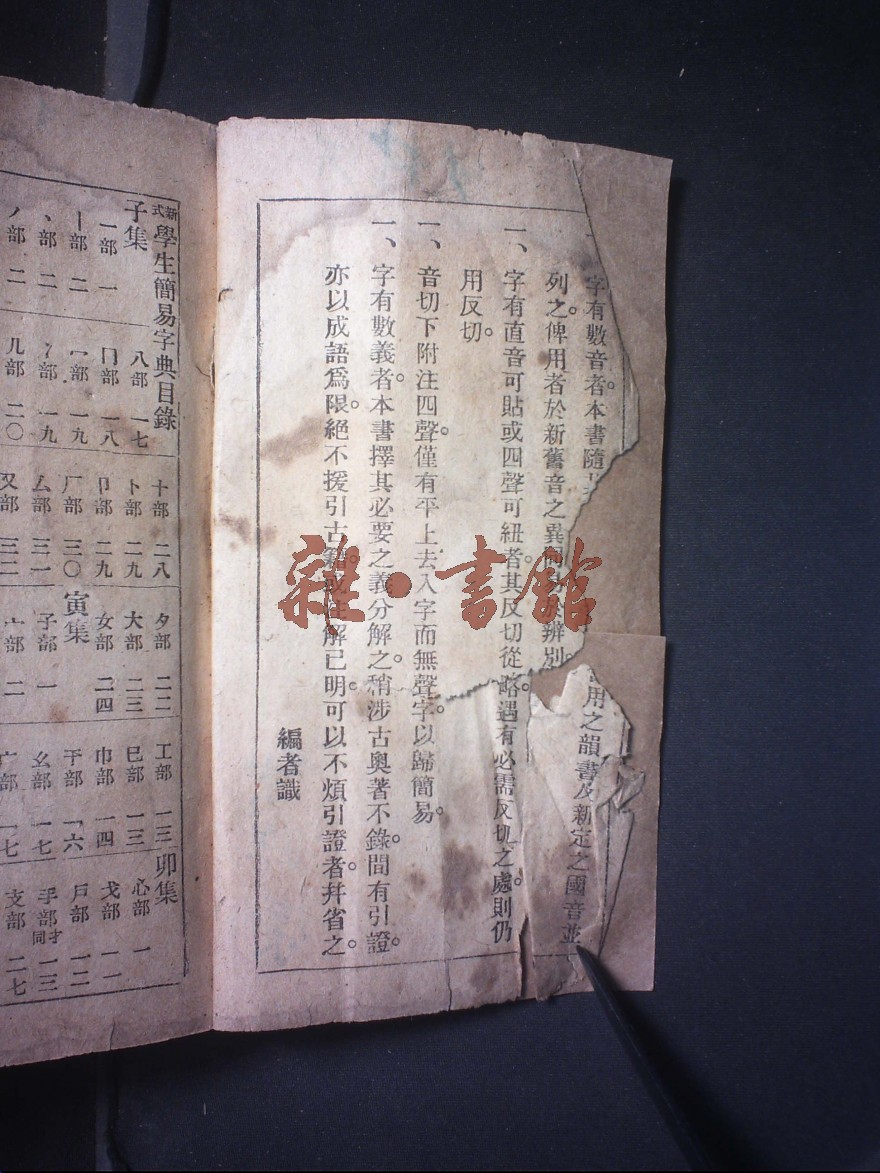 字有數音者。本書隨
用之韻書及新定之國音並
列之。俾用者於新舊音之異同易於辨別
一、字有直音可貼或四聲可紐者。其反切從略。遇有必需反切之處。則仍
用反切。
一、音切下附注四聲。僅有平上去入字而無聲字。以歸簡易。
一、字有數義者。本書擇其必要之義分解之。稍涉古奧著不錄。間有引證。
亦以成語爲限。絕不援引古籍。或注解已明。可以不煩引證者。幷省之。
編者識
雜·書館
新式學生簡易字典目錄
子集
一部 一
丨部 二
丶部 二
丿部 二
八部 一七
冂部 一八
冖部 一九
冫部 一九
几部 二〇
十部 二八
卜部 二九
卩部 二九
厂部 三〇
厶部 三一
又部 三二
寅集
夕部 二二
大部 二三
女部 二四
子部 一
宀部 二
工部 一三
已部 一三
巾部 一四
干部 一六
幺部 一七
广部 一七
卯集
心部 一
戈部 一一
戶部 一二
手部 同才 一三
支部 二七